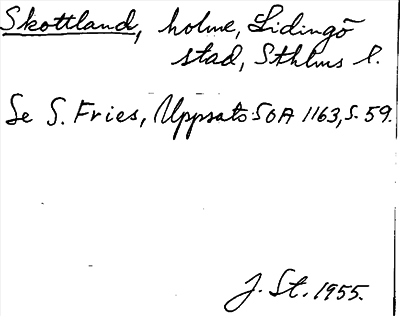 Skottland, holme, Lidingö
stad, Sthlms l.
Se S. Fries, Uppsats SOA 1163, s. 59.
J. St. 1955.